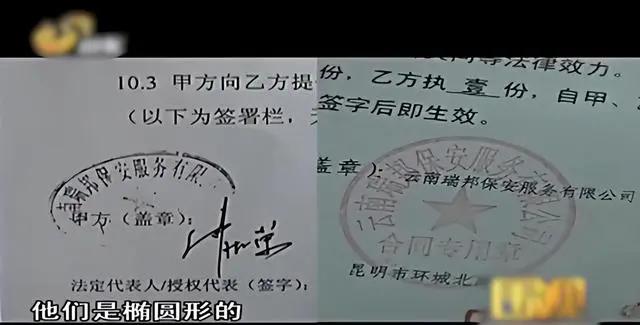 10.3 甲方向乙方提
（以下为签署栏，
南瑞邦保安服务有限
甲方（盖章）：
法定代表人/授权代表（签字）：
等法律效力。
份，乙方执 壹 份，自甲、
签字后即生效。
盖章）：
云南瑞邦保安服务有限公司
云南瑞邦保安服务有限公司
合同专用章
昆明市环城北
他们是椭圆形的